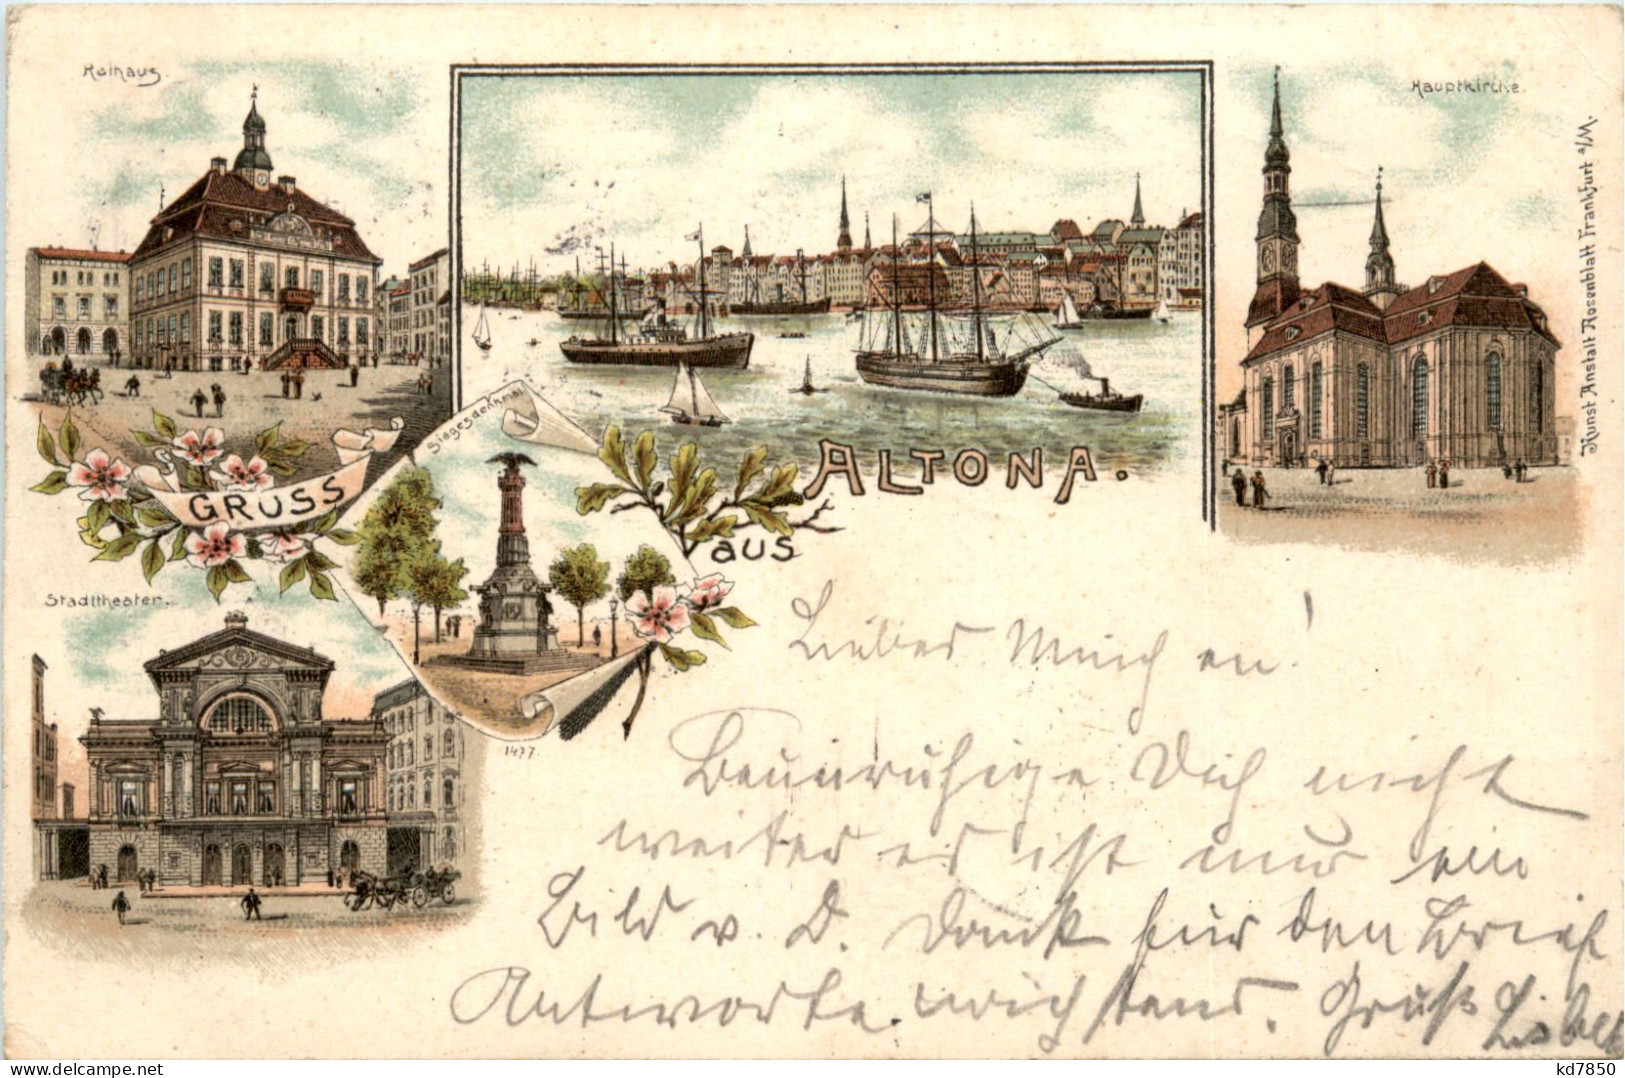 Rathaus.
Hauptkirche.
Kunst Anstalt Rosenblatt Frankfurt a/M.
Siegesdenkmal
GRUSS
aus
ALTONA.
Stadttheater.
1477.
Lieber
Beunruhige Dich nicht
weiter es ist nur ein
Bild v. D. Dank für den Brief
Antworte. Gruß Lisbeth
kd7850